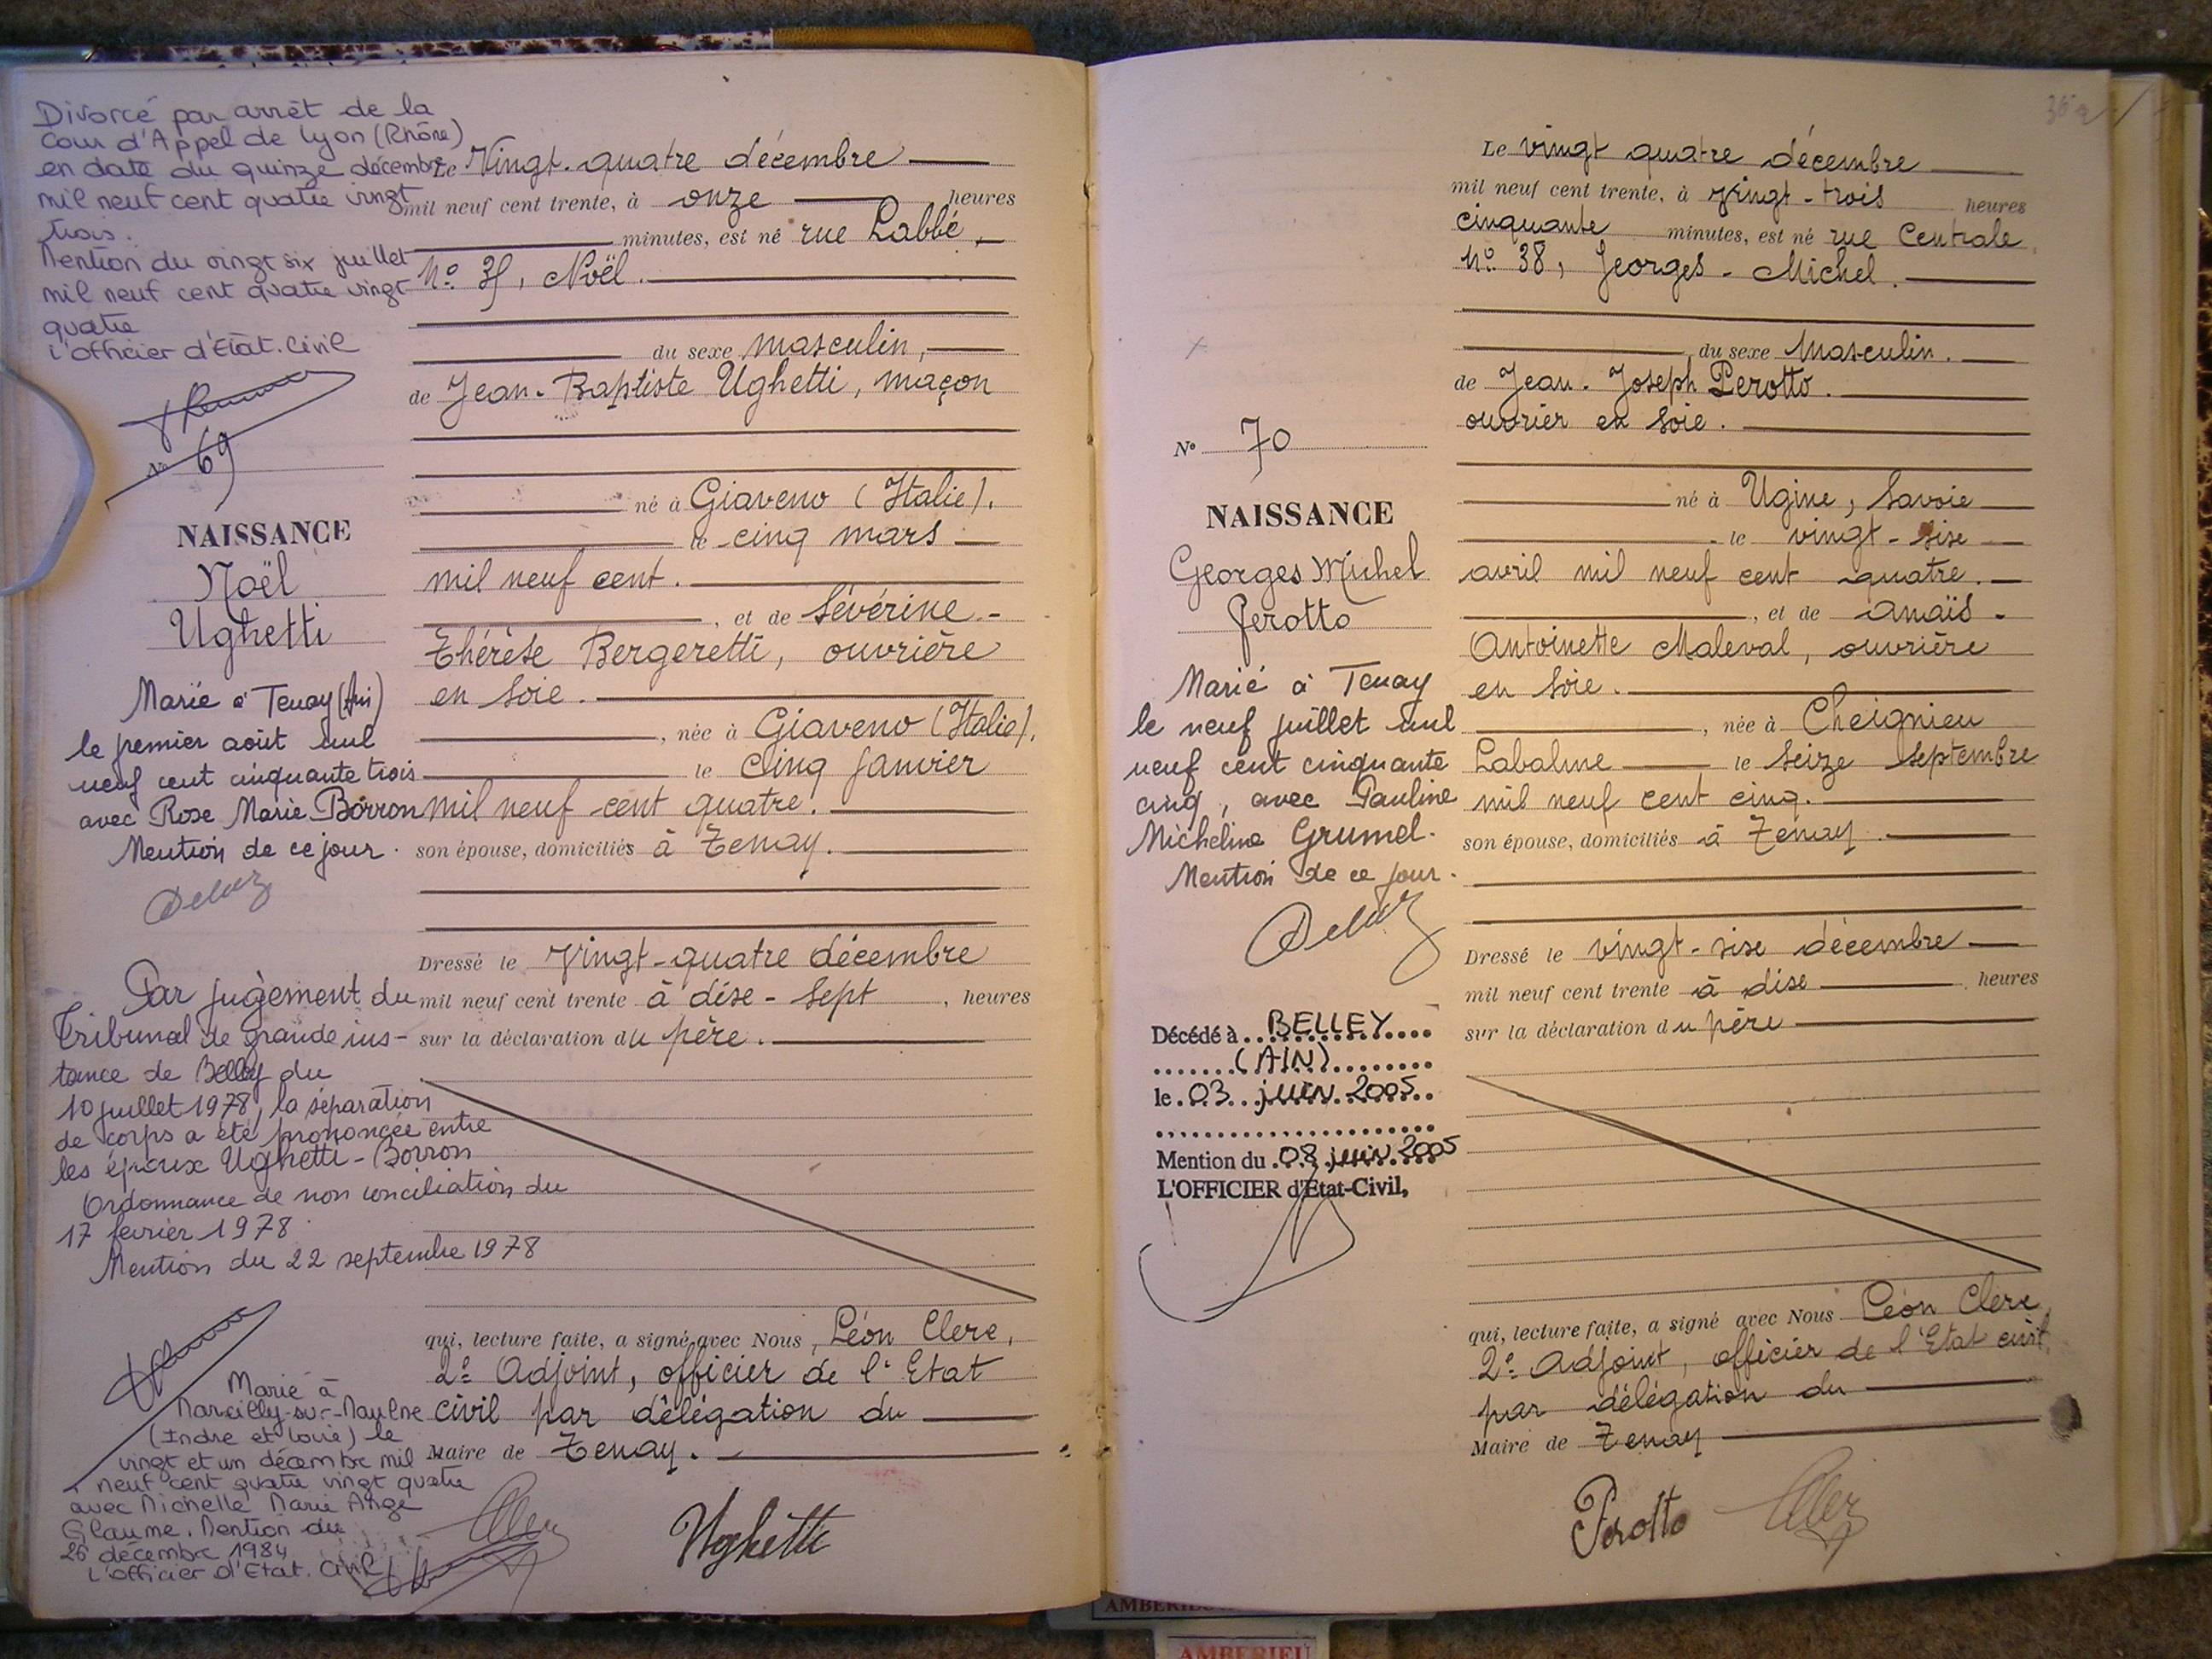 Divorcé par arrêt de la
Cour d'Appel de Lyon (Rhône)
en date du quinze décembre
mil neuf cent quatre vingt
trois.
Mention du vingt six juillet
mil neuf cent quatre vingt
quatre
L'Officier d'Etat.Civil
N° 69
NAISSANCE
Noël
Ughetti
Marié à Tenay (Ain)
le premier août mil
neuf cent cinquante trois
avec Rose Marie Borron
Mention de ce jour.
Par jugement du
Tribunal de grande ins-
tance de Belley du
10 juillet 1978, la séparation
de corps a été prononcée entre
les époux Ughetti-Borron
Ordonnance de non conciliation du
17 février 1978.
Mention du 22 septembre 1978
Marié à
Marcilly-sur-Maulne
(Indre et Loire) le
vingt et un décembre mil
neuf cent quatre vingt quatre
avec Michelle Marie Ange
Glaume. Mention du
26 décembre 1984
L'officier d'Etat. Civil
Le Vingt-quatre décembre
mil neuf cent trente, à onze heures
minutes, est né rue Labbé,
N° 35, Noël.
du sexe masculin,
de Jean-Baptiste Ughetti, maçon
né à Giaveno (Italie),
le cinq mars
mil neuf cent.
, et de Sévérine-
Thérèse Bergeretti, ouvrière
en soie.
, née à Giaveno (Italie),
le cinq janvier
mil neuf cent quatre.
son épouse, domiciliés à Tenay.
Dressé le Vingt-quatre décembre
mil neuf cent trente à dise-sept, heures
sur la déclaration du père.
qui, lecture faite, a signé avec Nous, Léon Clerc,
2e Adjoint, officier de l'Etat
civil par délégation du
Maire de Tenay.
Ughetti
N° 70
NAISSANCE
Georges Michel
Perotto
Marié à Tenay
le neuf juillet mil
neuf cent cinquante
cinq, avec Pauline
Micheline Grumel.
Mention de ce jour.
Décédé à BELLEY
(AIN)
le 03 juin 2005
Mention du 08 juin 2005
L'OFFICIER d'Etat-Civil,
Le vingt quatre décembre
mil neuf cent trente, à Vingt-trois heures
cinquante minutes, est né rue Centrale
N° 38, Georges-Michel.
du sexe Masculin.
de Jean-Joseph Perotto.
ouvrier en soie.
né à Ugine, Savoie
le vingt-sise
avril mil neuf cent quatre.
, et de Anaïs-
Antoinette Maleval, ouvrière
en soie.
, née à Cheignieu
Labalme le seize septembre
mil neuf cent cinq.
son épouse, domiciliés à Tenay.
Dressé le vingt-sise décembre
mil neuf cent trente à dise heures
sur la déclaration du père
qui, lecture faite, a signé avec Nous Léon Clerc,
2e Adjoint, officier de l'Etat civil,
par délégation du
Maire de Tenay
Perotto
AMBERIEU